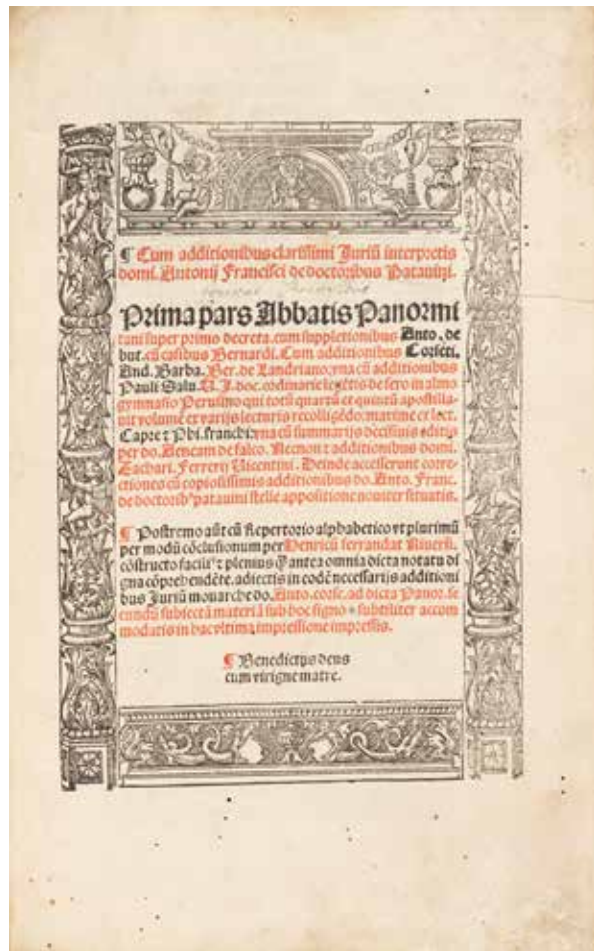 ¶ Cum additionibus clarissimi Juriū interpretis
domi. Antonij Francisci de doctoribus Patauini.
Prima pars Abbatis Panormi
tani super primo decreta. cum suppletionibus Anto. de
but. cū casibus Bernardi. Cum additionibus Corseti.
And. Barba. Ber. de Landriano: vna cū additionibus
Pauli Salu. U. J. doc. ordinarie legētis de sero in almo
gymnasio Perusino qui totū quartū et quintū apostilla
uit volumē et varijs lecturis recolligēdo: maxime ex lect.
Capre ⁊ Phi. franchi: vna cū summarijs decissiuis editis
per do. Aeneam de falco. Necnon ⁊ additionibus domi.
Zachari. Ferrerij Vicentini. Deinde accesserunt corre-
ctiones cū copiosissimis additionibus do. Anto. Franc.
de doctorib⁹ patauini stelle appositione nouiter situatis.
¶ Postremo aūt cū Repertorio alphabetico vt plurimū
per modū cōclusionum per Henricū ferrandat Niuersī.
cōstructo faciliꝰ ⁊ plenius ꝙ̄ antea omnia dicta notatu di
gna cōprehendēte. adiectis in eodē necessarijs additioni
bus Juriū monarche do. Anto. corse. ad dicta Panor. se
cundū subiectā materiā sub hoc signo * subtiliter accom
modatis in hac vltima impressione impressis.
¶ Benedictus deus
cum virigne matre.